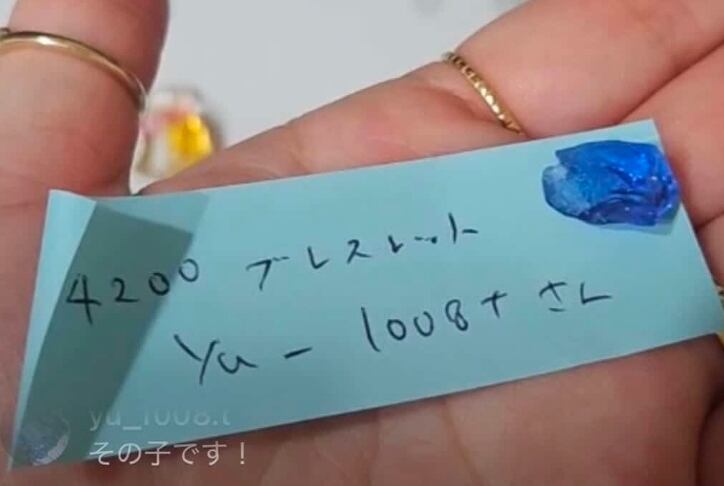 4200 ブレスレット
Yu - 1008t さん
yu_1008.t
その子です！